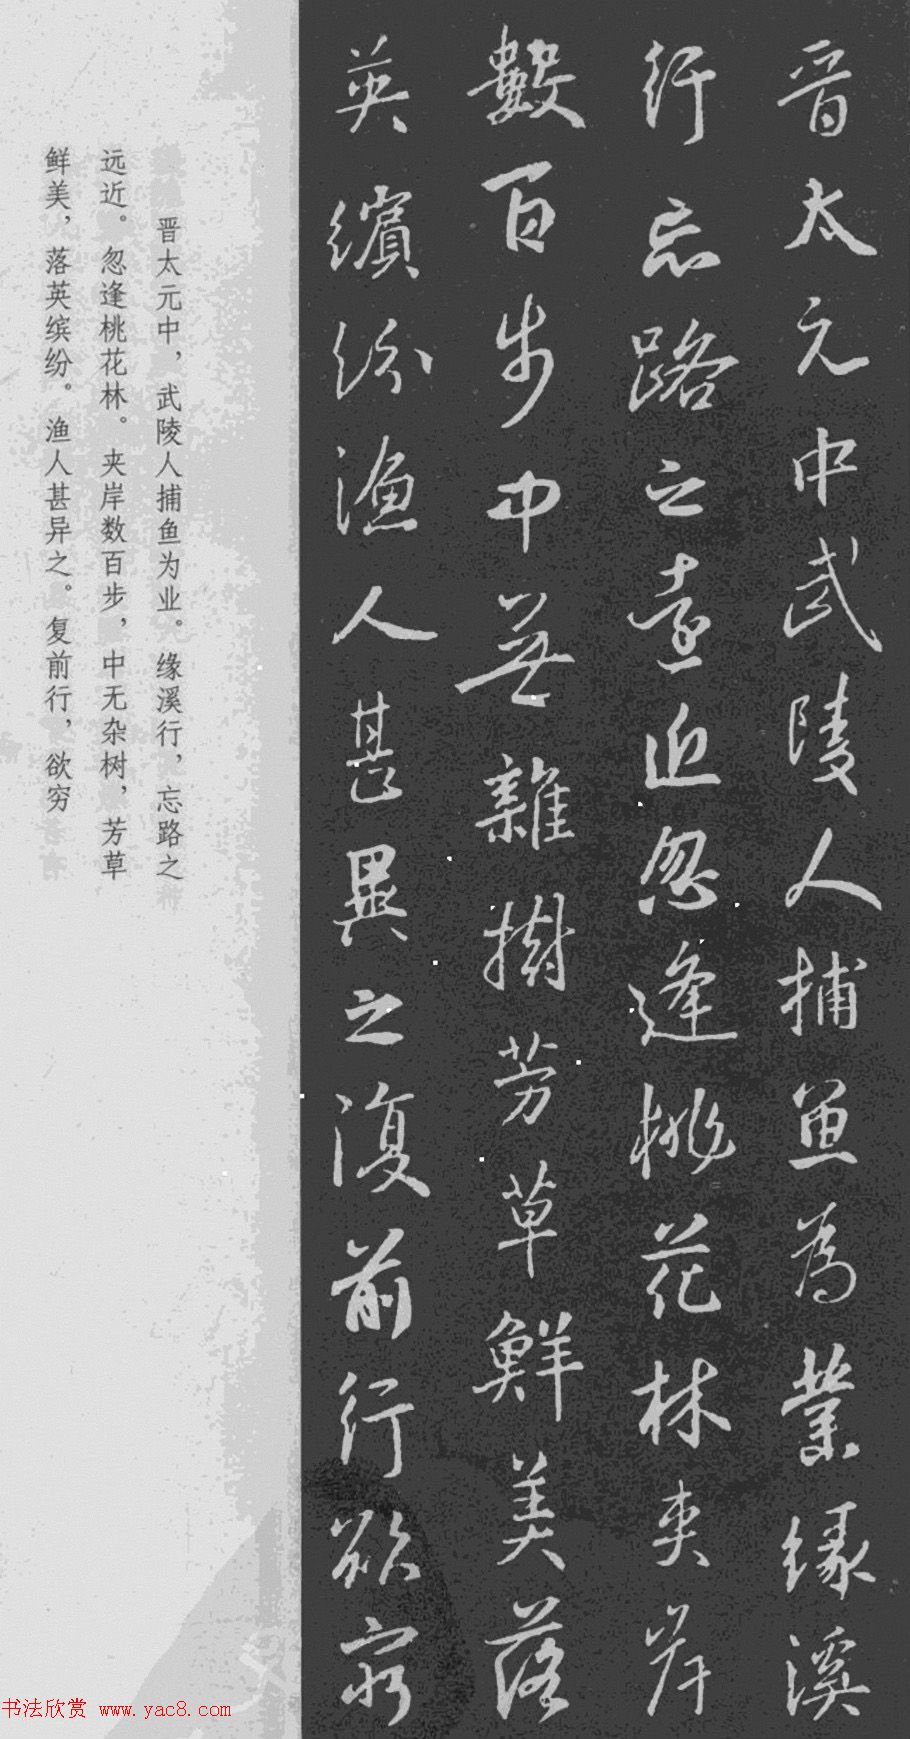 晋太元中武陵人捕鱼為業緣溪
行忘路之遠近忽逢桃花林夹岸
數百步中無雜樹芳草鮮美落
英繽紛漁人甚異之復前行欲窮
晋太元中，武陵人捕鱼为业。缘溪行，忘路之
远近。忽逢桃花林。夹岸数百步，中无杂树，芳草
鲜美，落英缤纷。渔人甚异之。复前行，欲穷
书法欣赏 www.yac8.com